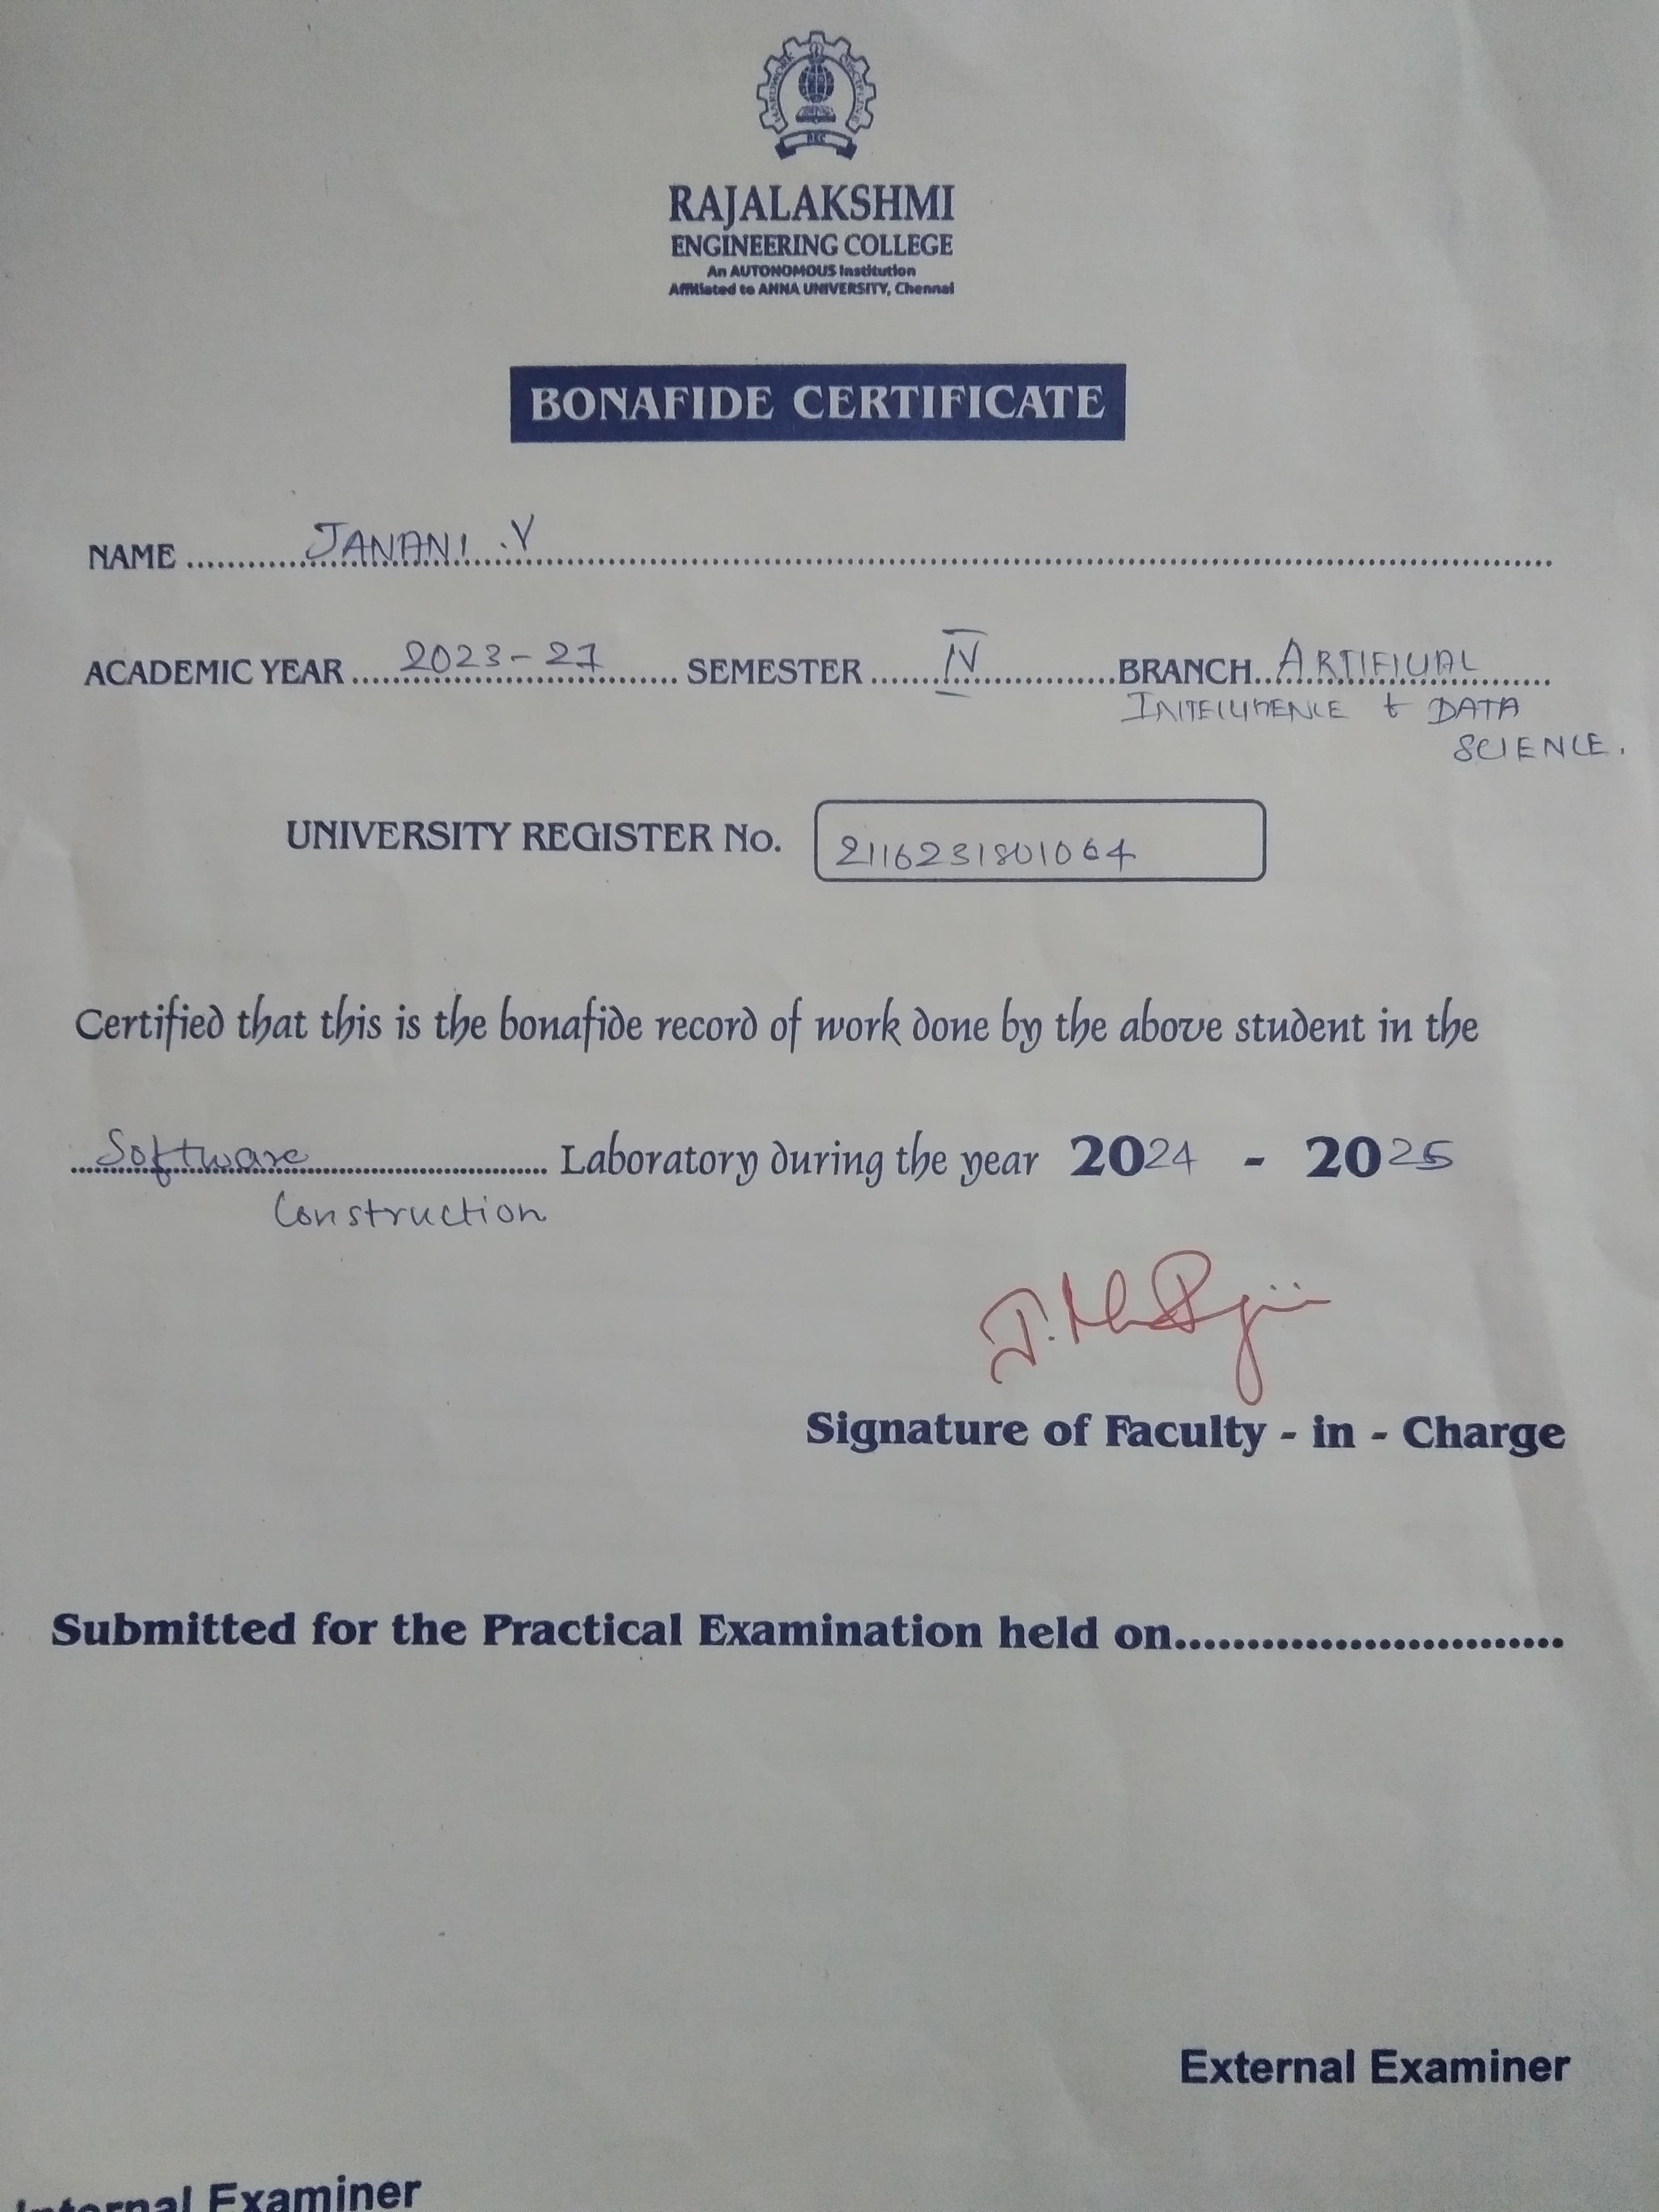 HARDWORK DISCIPLINE
REC
RAJALAKSHMI
ENGINEERING COLLEGE
An AUTONOMOUS Institution
Affiliated to ANNA UNIVERSITY, Chennai
BONAFIDE CERTIFICATE
NAME JANANI .V
ACADEMIC YEAR 2023-27 SEMESTER IV BRANCH ARTIFICIAL
INTELLIGENCE & DATA
SCIENCE.
UNIVERSITY REGISTER No. 2116231801064
Certified that this is the bonafide record of work done by the above student in the
Software Laboratory during the year 2024 - 2025
Construction
Signature of Faculty - in - Charge
Submitted for the Practical Examination held on
External Examiner
Internal Examiner